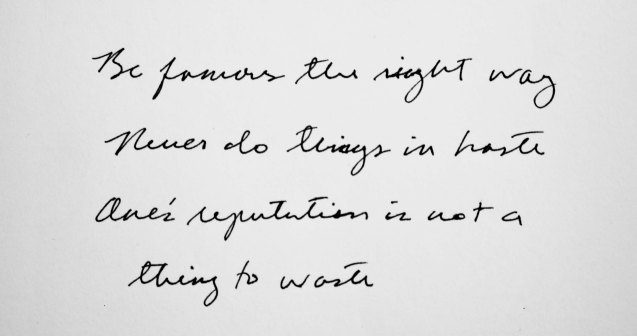 Be famous the right way
Never do things in haste
One's reputation is not a
thing to waste